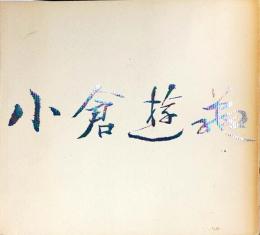 小倉遊亀